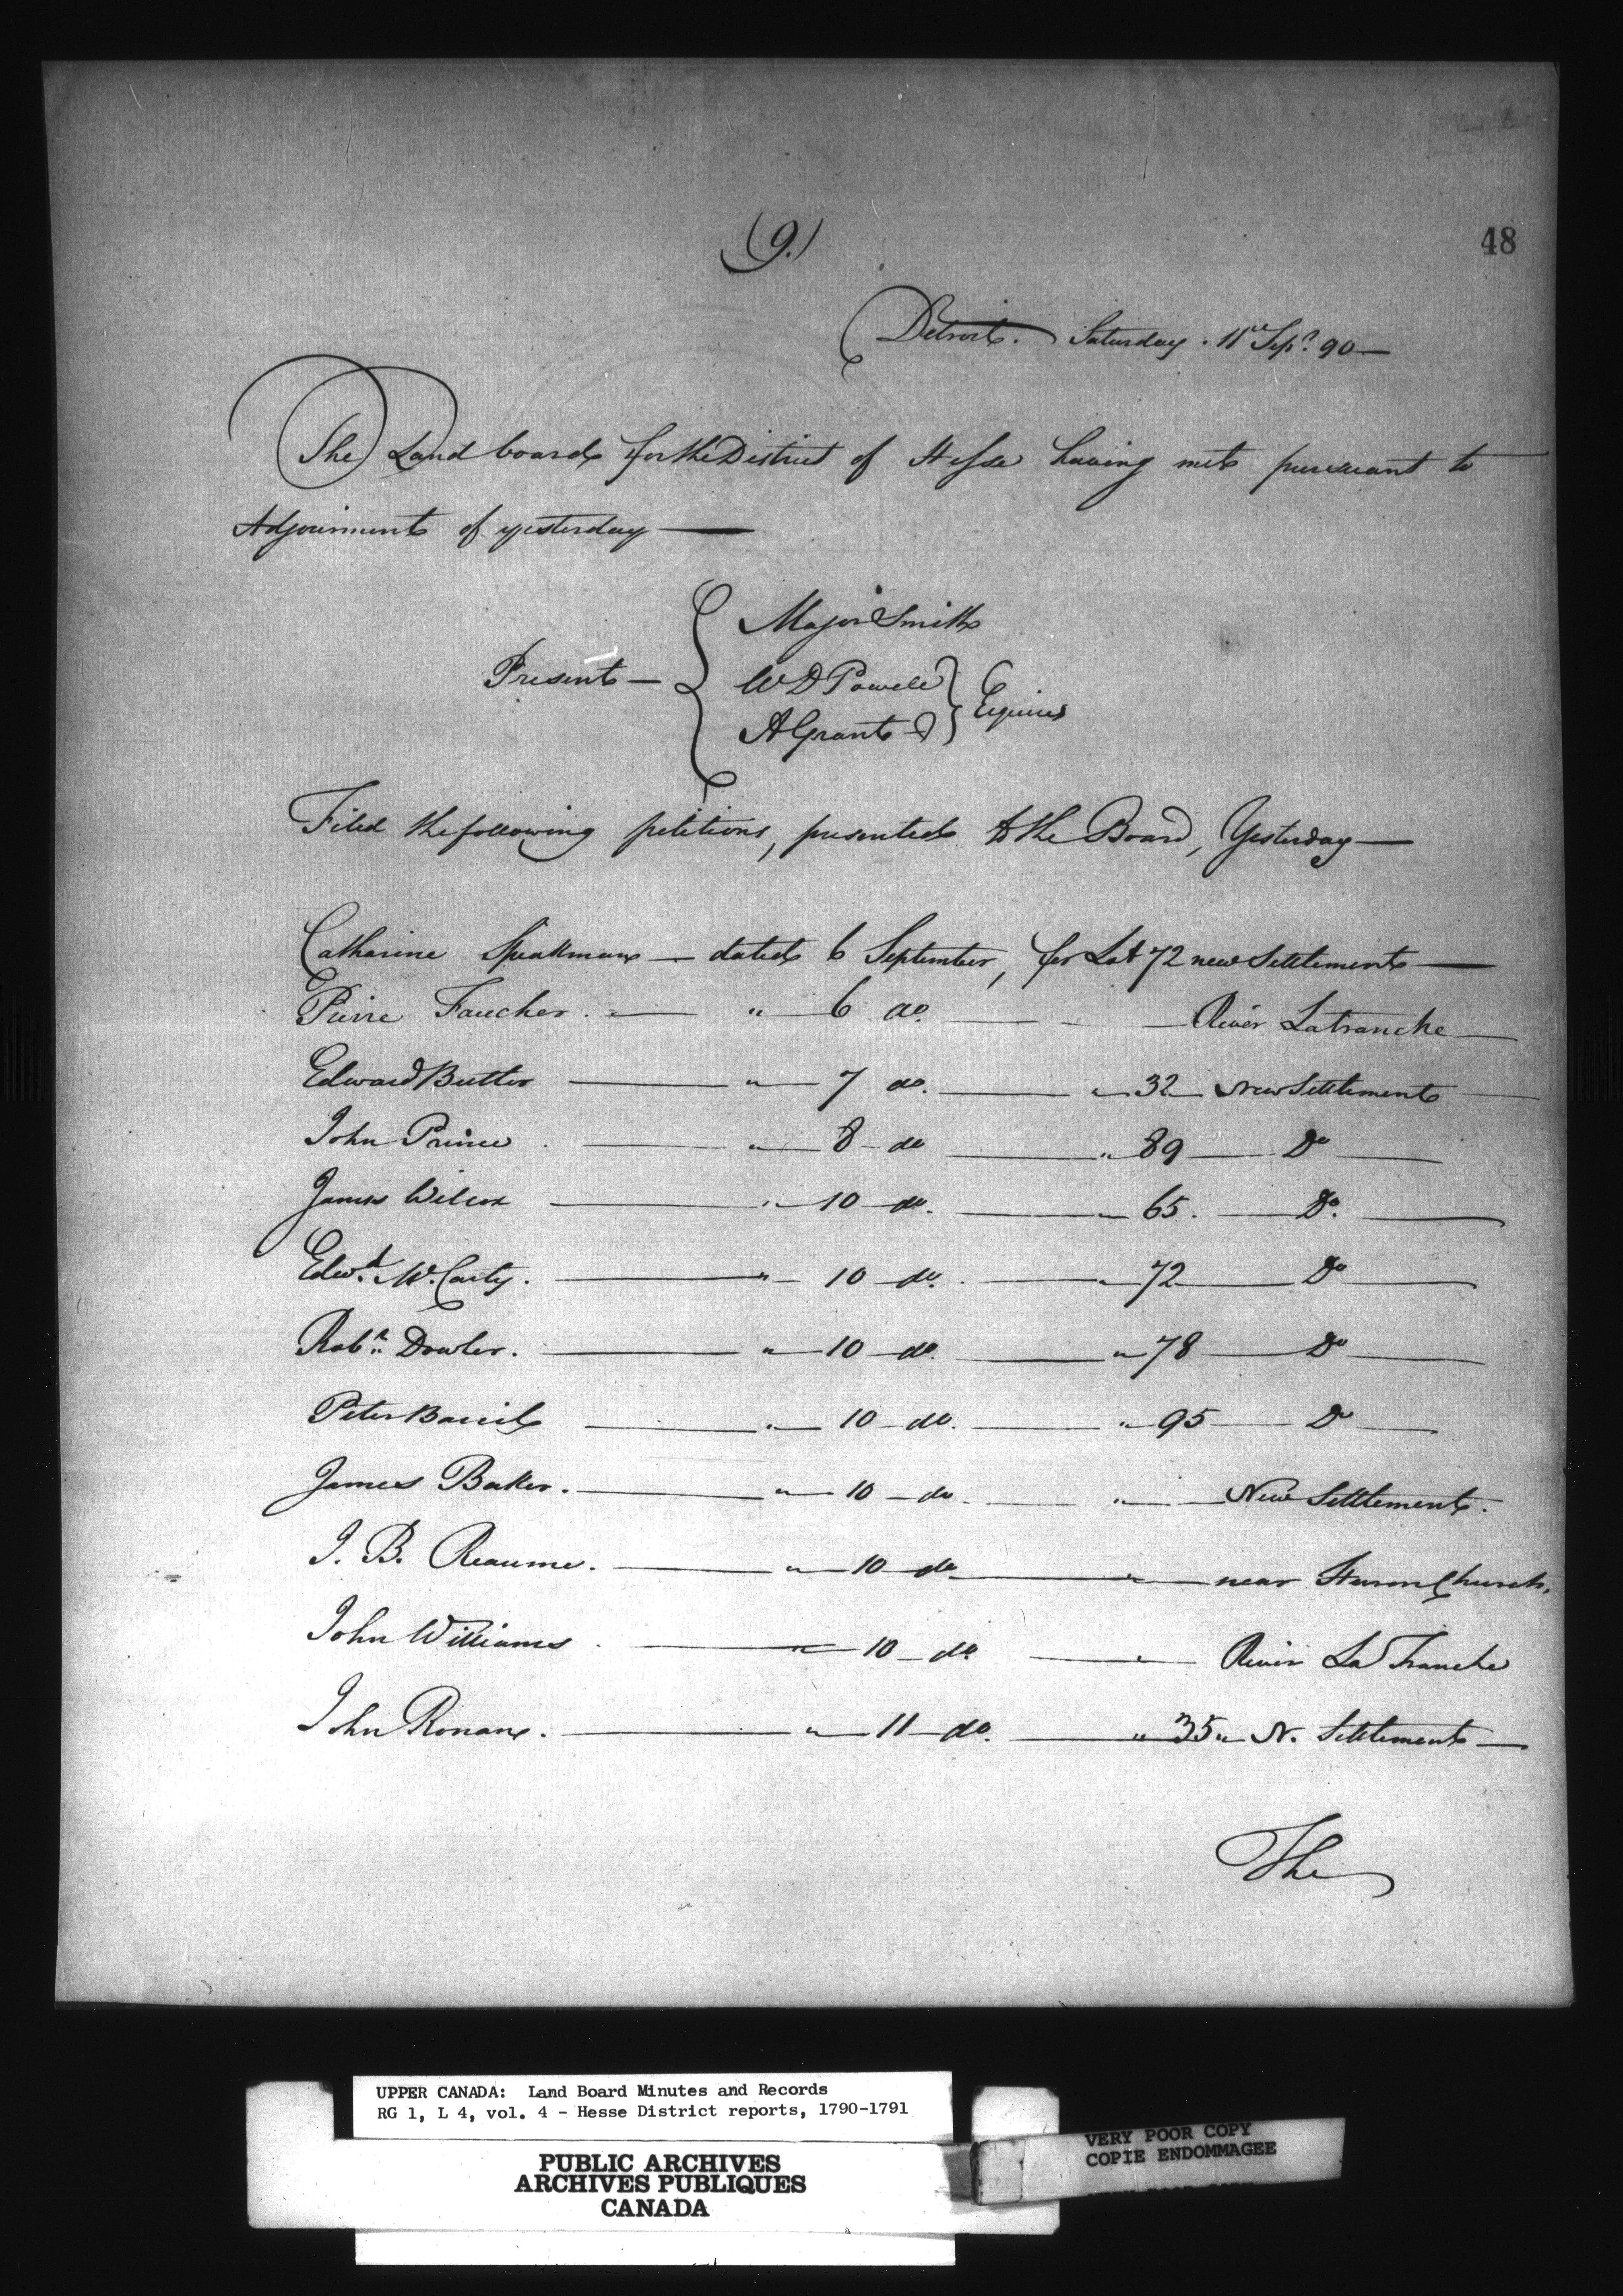 (9.)
48
Detroit. Saturday. 11th Sepr. 90—
The Land board for the District of Hesse having met pursuant to
Adjournment of yesterday —
Present — { Major Smith
W D Powell
A Grant } Esquires
Filed the following petitions, presented to the Board, Yesterday —
Catharine Speakman — dated 6 September, for Lot 72 new Settlement —
Pierre Faucher. — " — 6 do. — River Latranche —
Edward Butler — " — 7 do. — " 32 — New Settlement —
John Prince. — " — 8 — do — " 89 — Do —
James Wilcox — " — 10 — do. — " 65. — Do. —
Edwd. McCarty. — " — 10 — do. — " 72 — Do —
Robt. Dowler. — " — 10 — do. — " 78 — Do —
Peter Barril — " — 10 — do. — " 95 — Do —
James Baker. — " — 10 — do. — " — New Settlement.
J. B. Reaume. — " — 10 — do — " — near Huron Church.
John Williams. — " — 10 — do. — " — River La Tranche
John Ronan. — " — 11 — do. — " 35 " N. Settlement —
The
UPPER CANADA: Land Board Minutes and Records
RG 1, L 4, vol. 4 - Hesse District reports, 1790-1791
PUBLIC ARCHIVES
ARCHIVES PUBLIQUES
CANADA
VERY POOR COPY
COPIE ENDOMMAGEE